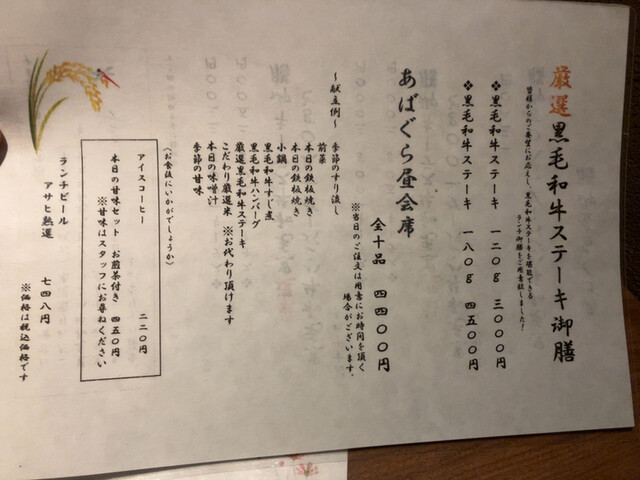 厳選黒毛和牛ステーキ御膳
皆様からのご要望にお応えし、黒毛和牛ステーキを堪能できる
ランチ御膳をご用意致しました！
❖黒毛和牛ステーキ 一二〇g 三〇〇〇円
❖黒毛和牛ステーキ 一八〇g 四五〇〇円
あばぐら昼会席 全十品 四四〇〇円
※当日のご注文は用意にお時間を頂く
場合がございます。
～献立例～ 季節のすり流し
前菜
本日の鉄板焼き
本日の鉄板焼き
小鍋
黒毛和牛すじ煮
黒毛和牛ハンバーグ
厳選黒毛和牛ステーキ
こだわり厳選米 ※お代わり頂けます
本日の味噌汁
季節の甘味
〈お食後にいかがでしょうか〉
アイスコーヒー 二二〇円
本日の甘味セット お煎茶付き 四五〇円
※甘味はスタッフにお尋ねください
ランチビール
アサヒ熟選 七四八円
※価格は税込価格です